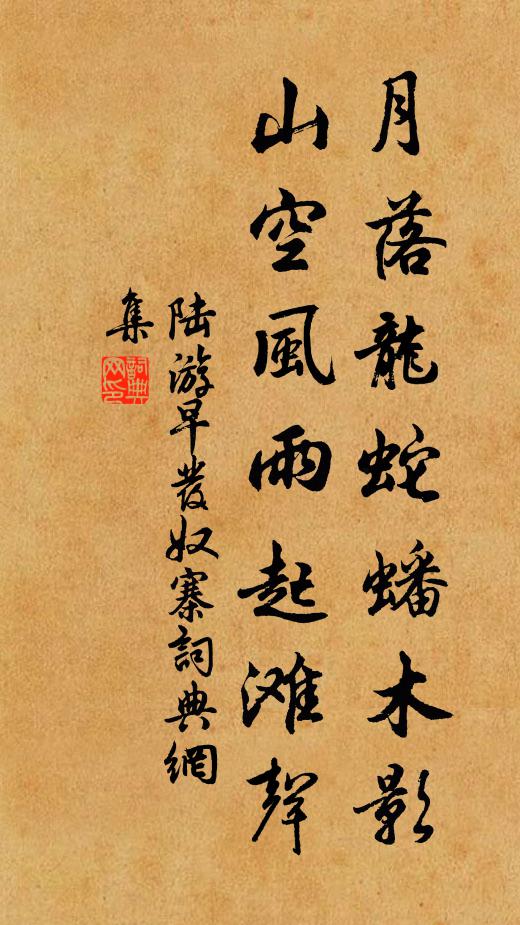 月落龍蛇蟠木影
山空風雨起滩聲
陆游早發奴寨詞典網
集
詞典
网印